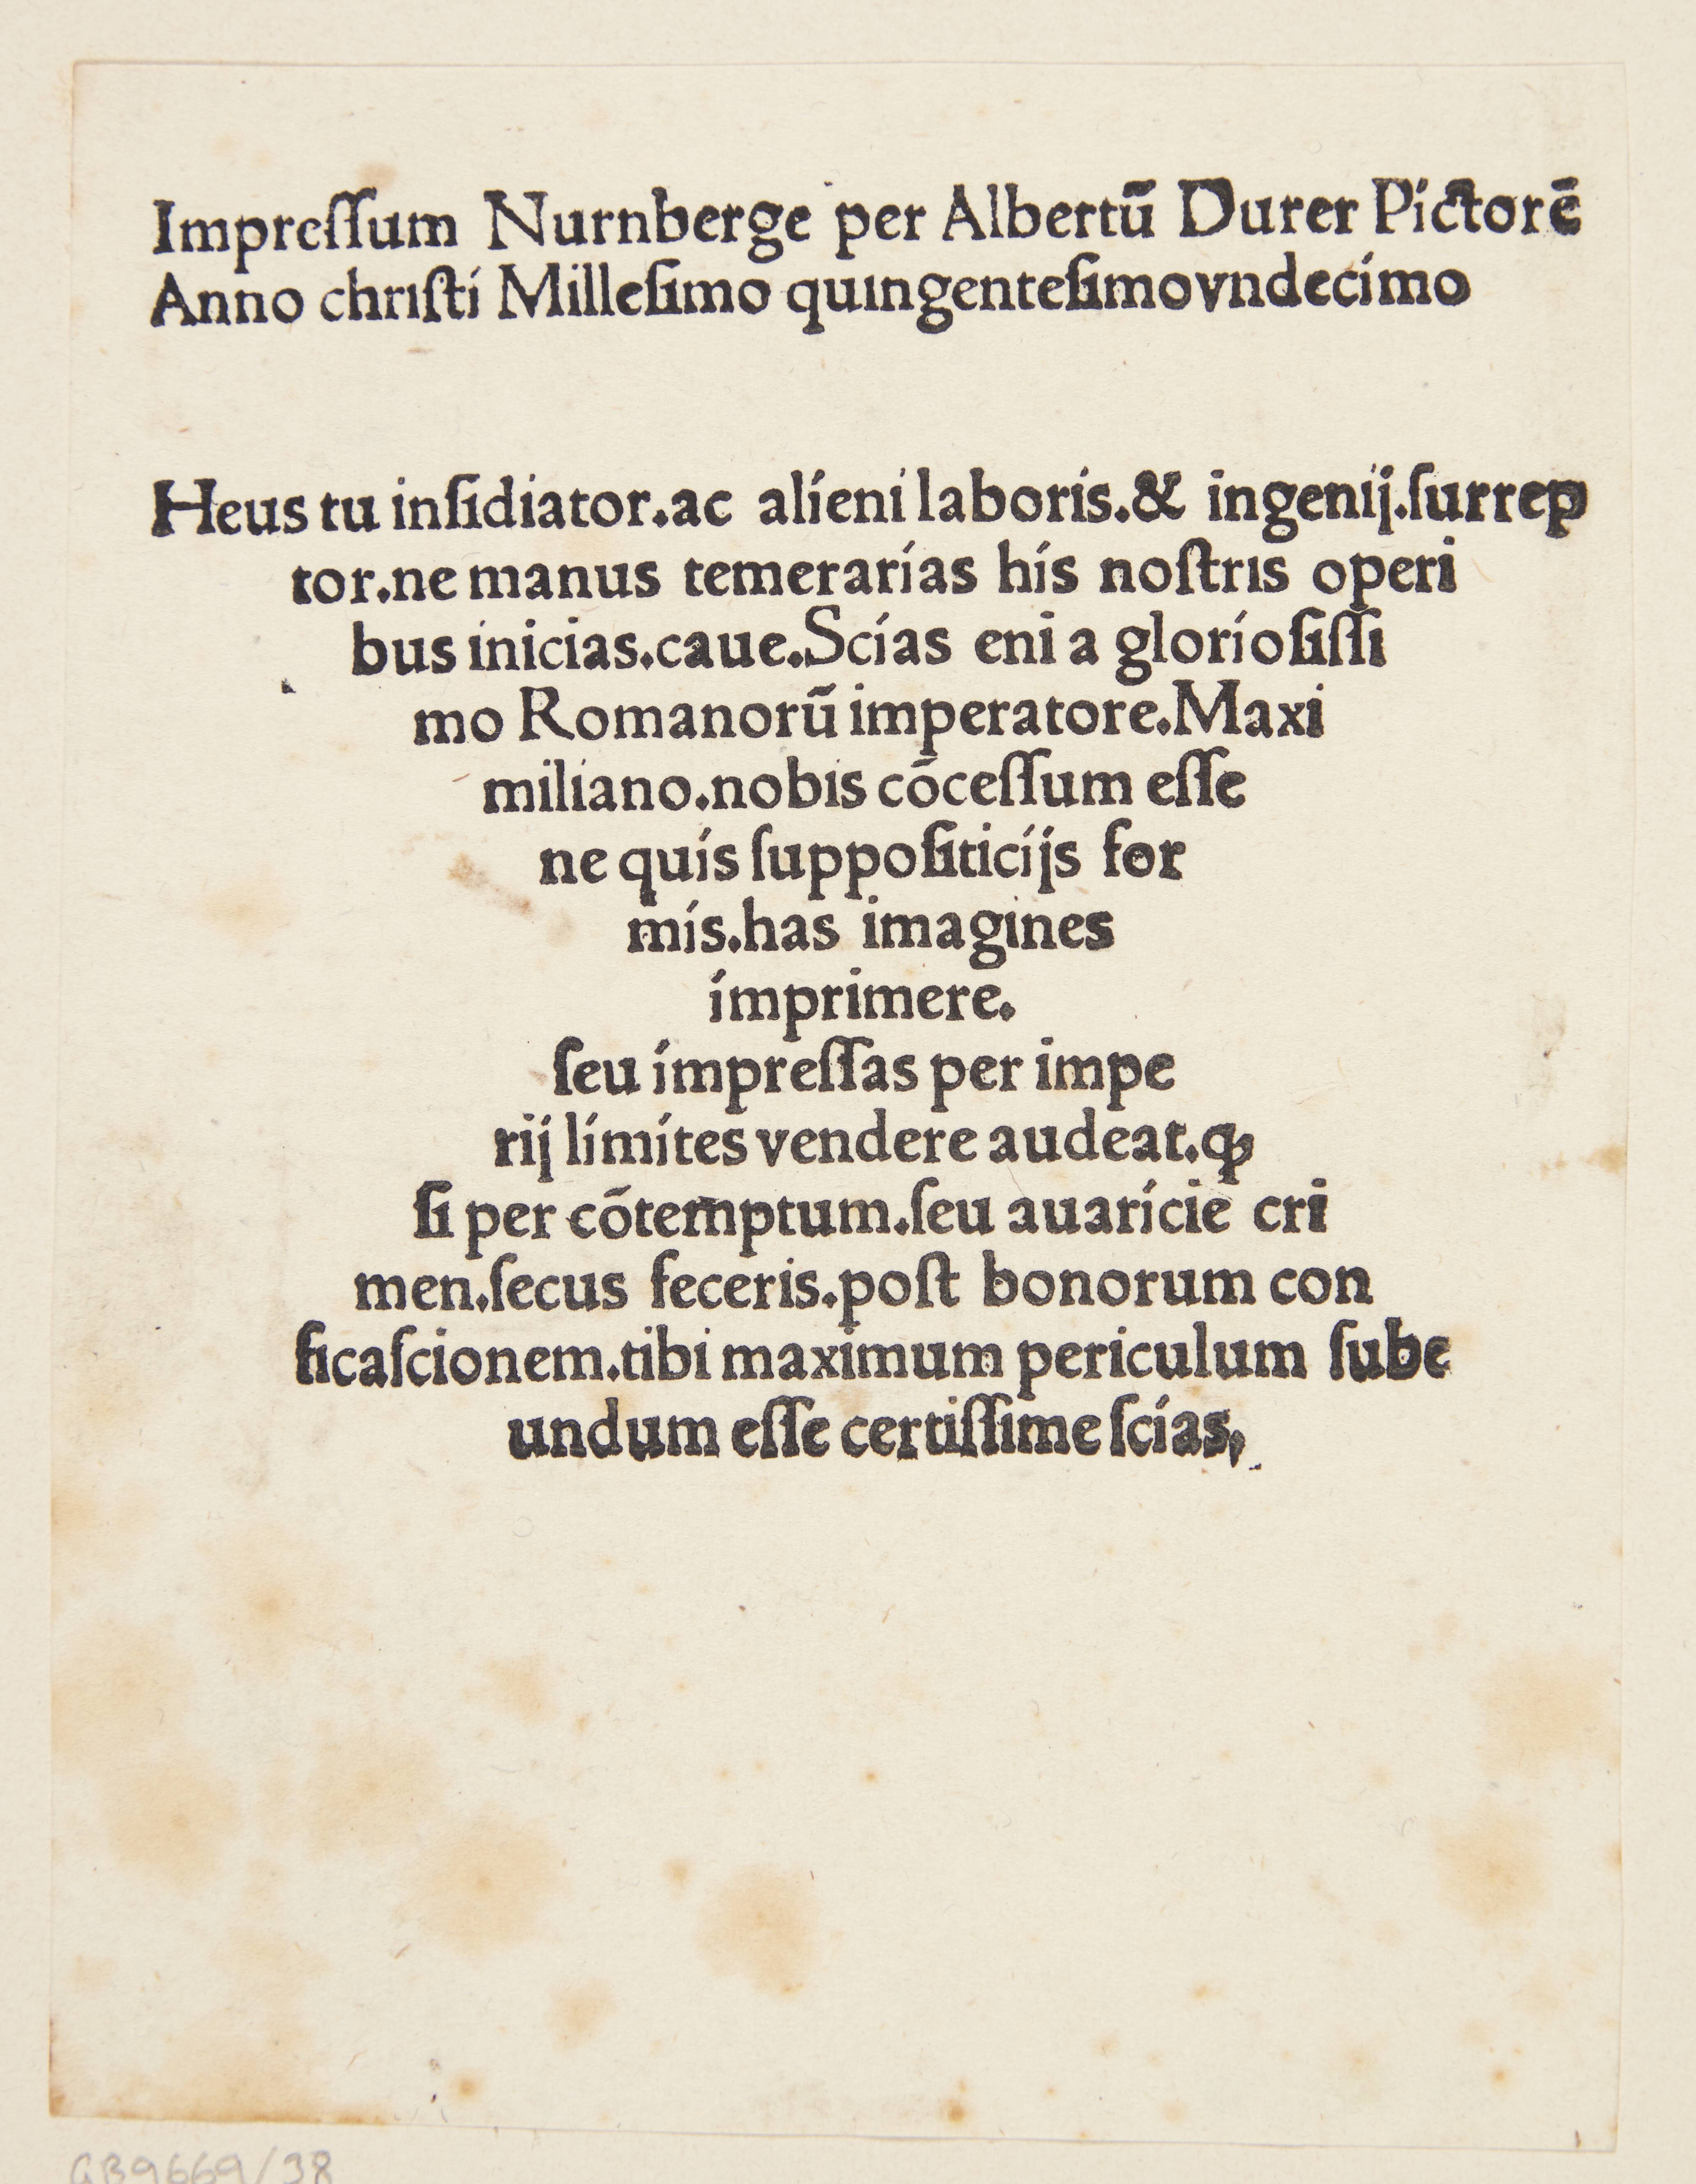 Impreſſum Nurnberge per Albertū Durer Pictorē
Anno chriſti Milleſimo quingenteſimovndecimo
Heus tu inſidiator.ac alieni laboris.& ingenij.ſurrep
tor.ne manus temerarias his noſtris operi
bus inicias.caue.Scias eni a glorioſiſſi
mo Romanorū imperatore.Maxi
miliano.nobis cōceſſum eſſe
ne quis ſuppoſiticijs for
mis.has imagines
imprimere.
ſeu impreſſas per impe
rij limites vendere audeat.ꝙ
ſi per cōtemptum.ſeu auaricie cri
men.ſecus feceris.poſt bonorum con
ficaſcionem.tibi maximum periculum ſube
undum eſſe certiſſime ſcias,
GB9669/38